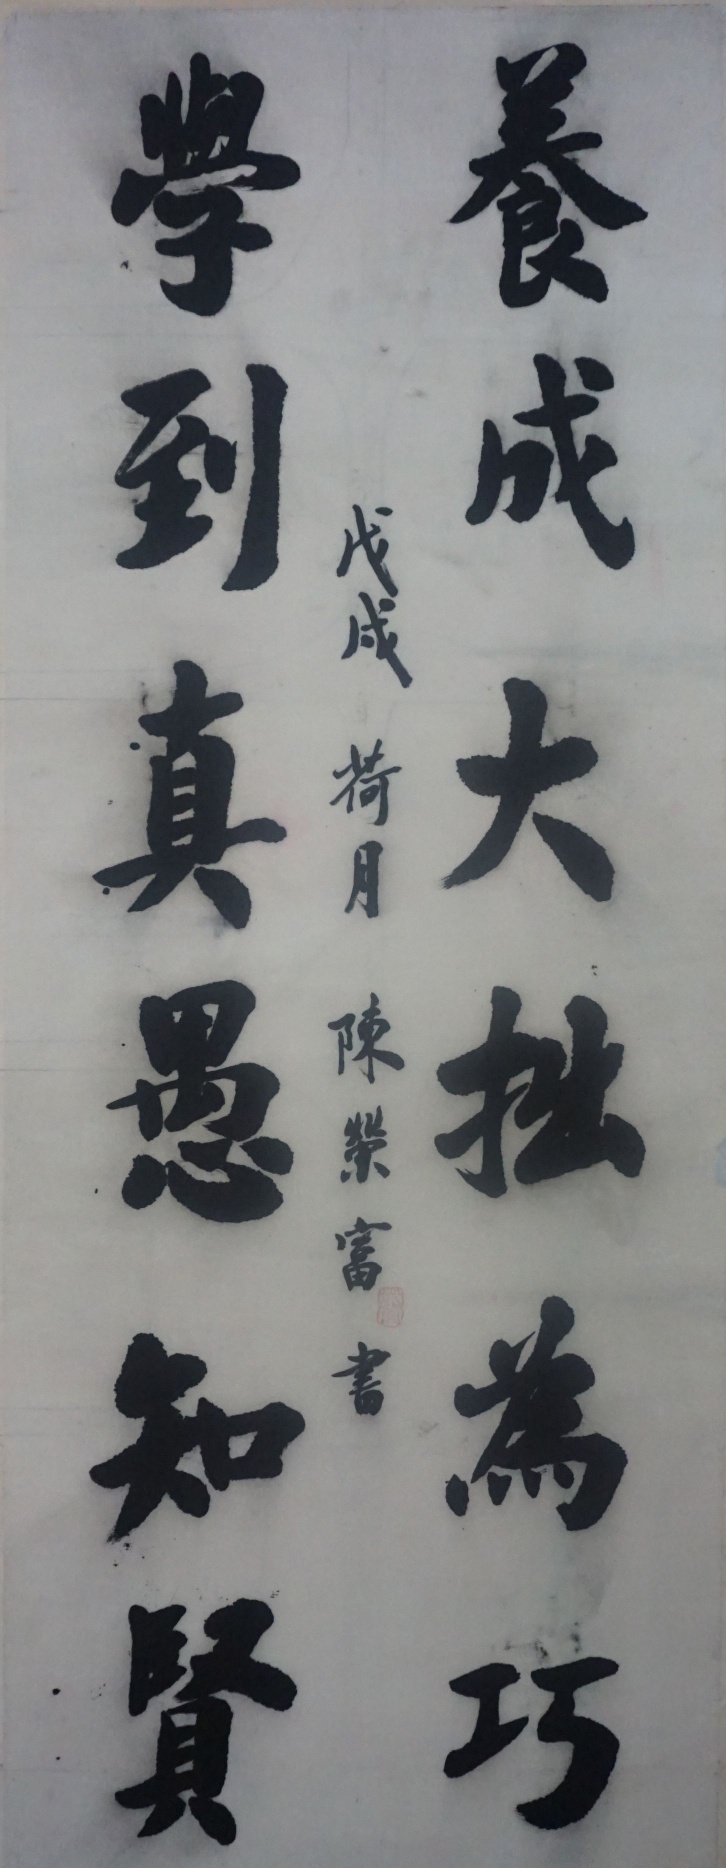 養成大拙為巧
學到真愚知賢
戊戌 荷月 陳榮富書